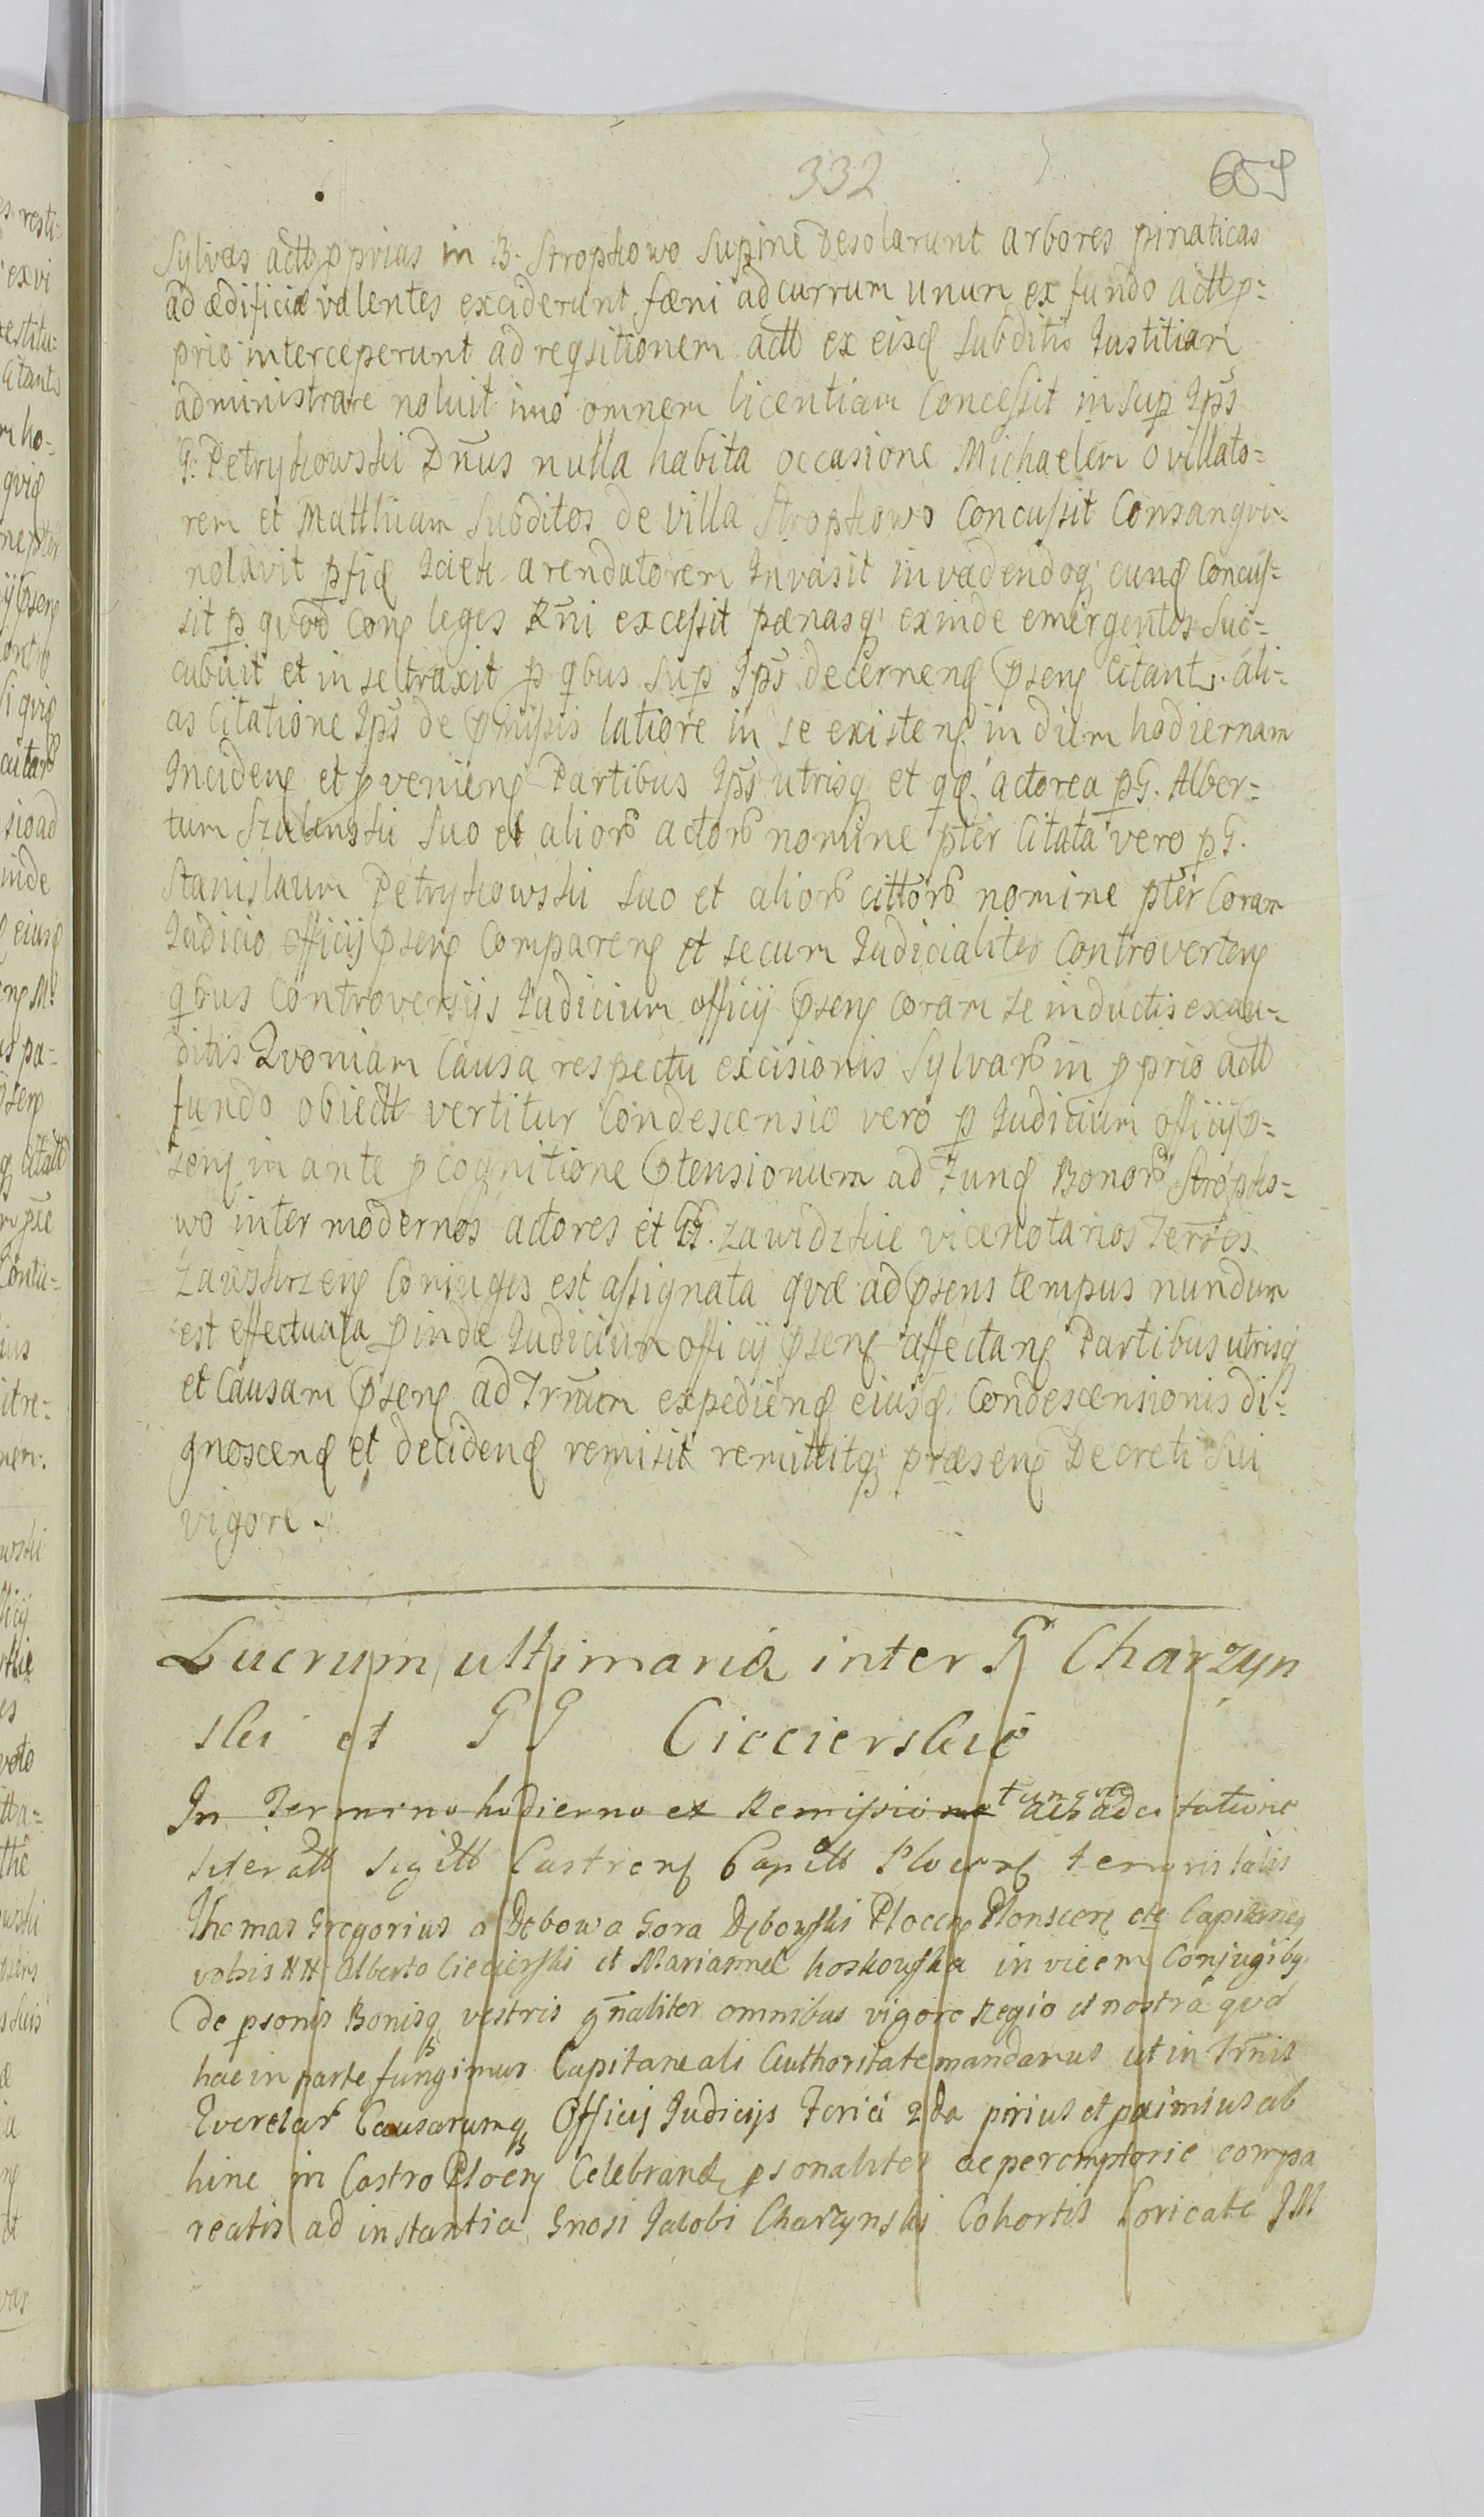 332
659
Sylvas actt pprias in B. Stropkowo supine desolarunt arbores pinaticas
ad ædificia valentes exciderunt fæni ad currum unum ex fundo actt p=
prio interceperunt ad reqsitionem actt ex eisd subditis Iustitiam
administrare noluit imo omnem licentiam concessit insup Ips
G: Petrykowski Dnus nulla habita occasione Michaelem ovillato=
rem et Matthiam subditos de villa Stropkowo concussit consangvi=
nolavit pfid Iciek arendatorem Invasit invadendoq eund concus=
sit p qvod cong leges Rni excessit pænasq exinde emergentes suc=
cubuit et in se traxit p qbus sup Ips decerneng pseng citant. ali=
as Citatione Ips de pmissis latiore in se existeng in diem hodiernam
Incideng et pvenieng Partibus Ips utrisq et qd. actorea p G. Alber=
tum suo et alior actor nomine pter Citata vero p G.
Stanislaum Petrykowski suo et alior cittor nomine pter Coram
Iudicio officij pseng Compareng et secum Iudicialiter Controverteng
qbus Controversijs Iudicium officij pseng coram se inductis exau=
ditis Qvoniam Causa respectu excisionis Sylvar in pprio actt
fundo obiectt vertitur Condescensio vero p Iudicium officij p=
seng in ante pcognitione ptensionum ad Fund Bonor Stropko=
wo inter modernos actores et GG. Zawidzkie vicenotarios Terres
Zawskrzeng Coniuges est assignata qvæ ad psens tempus nundum
est effectuata pinde Iudicium officij pseng affectang Partibus utrisq
et Causam pseng ad Trnum expediend eiusd Condescensionis di=
gnoscend et decidend remisit remittitq præseng Decreti sui
vigore.
Lucrum ultimaria inter G Charzyn
ski et G G Ciecierskie
In Termino hodierno ex Remissione ac ad citatione
literatt sigitt Castreng Capitt Ploceng tenoris talis
Thomas Gregorius a Dębowa Gora Dębowski Ploceng Plonsceng etc Capitaneg
vobis NN Alberto Ciecierski et Mariannæ koskowska in vicem Conjugibg
de psonis Bonisq vestris gnaliter omnibus vigore Regio et nostra qvd
hac in parte fungimur Capitaneali Authoritate mandamus ut in Trnis
Qverelar Causarumq Officij Iudicijs Feria 2da pirius et primius ab
hinc in Castro Ploceng Celebrand psonaliter ac peremptorie compa
reatis ad instantia Gnosi Iacobi Charzynski Cohortis Loricate I M